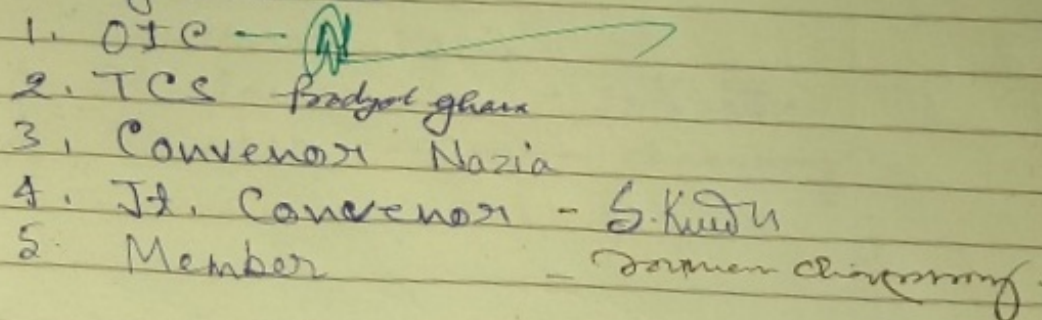 1. OIC —
2. TCS Pradyot ghosh
3, Convenor Nazia
4. Jt. Convenor - S. Kundu
5. Member -